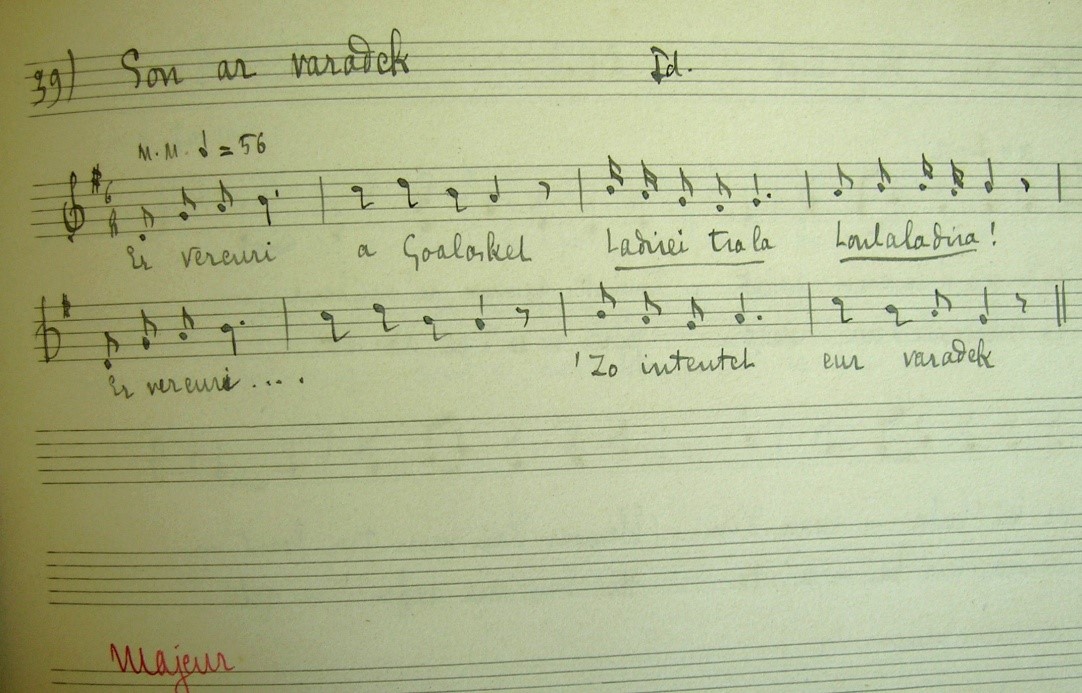 39) Son ar varadek Id.
M.M. ♩ = 56
6
8
Er vereuri a Goaloskel Ladirei tra la Loulaladira !
Er vereuri....  'Zo intentet eur varadek
Majeur